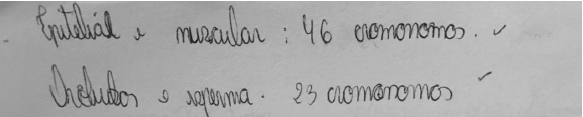 Epitelial e muscular : 46 cromonomos.
e esperma. 23 cromonomos